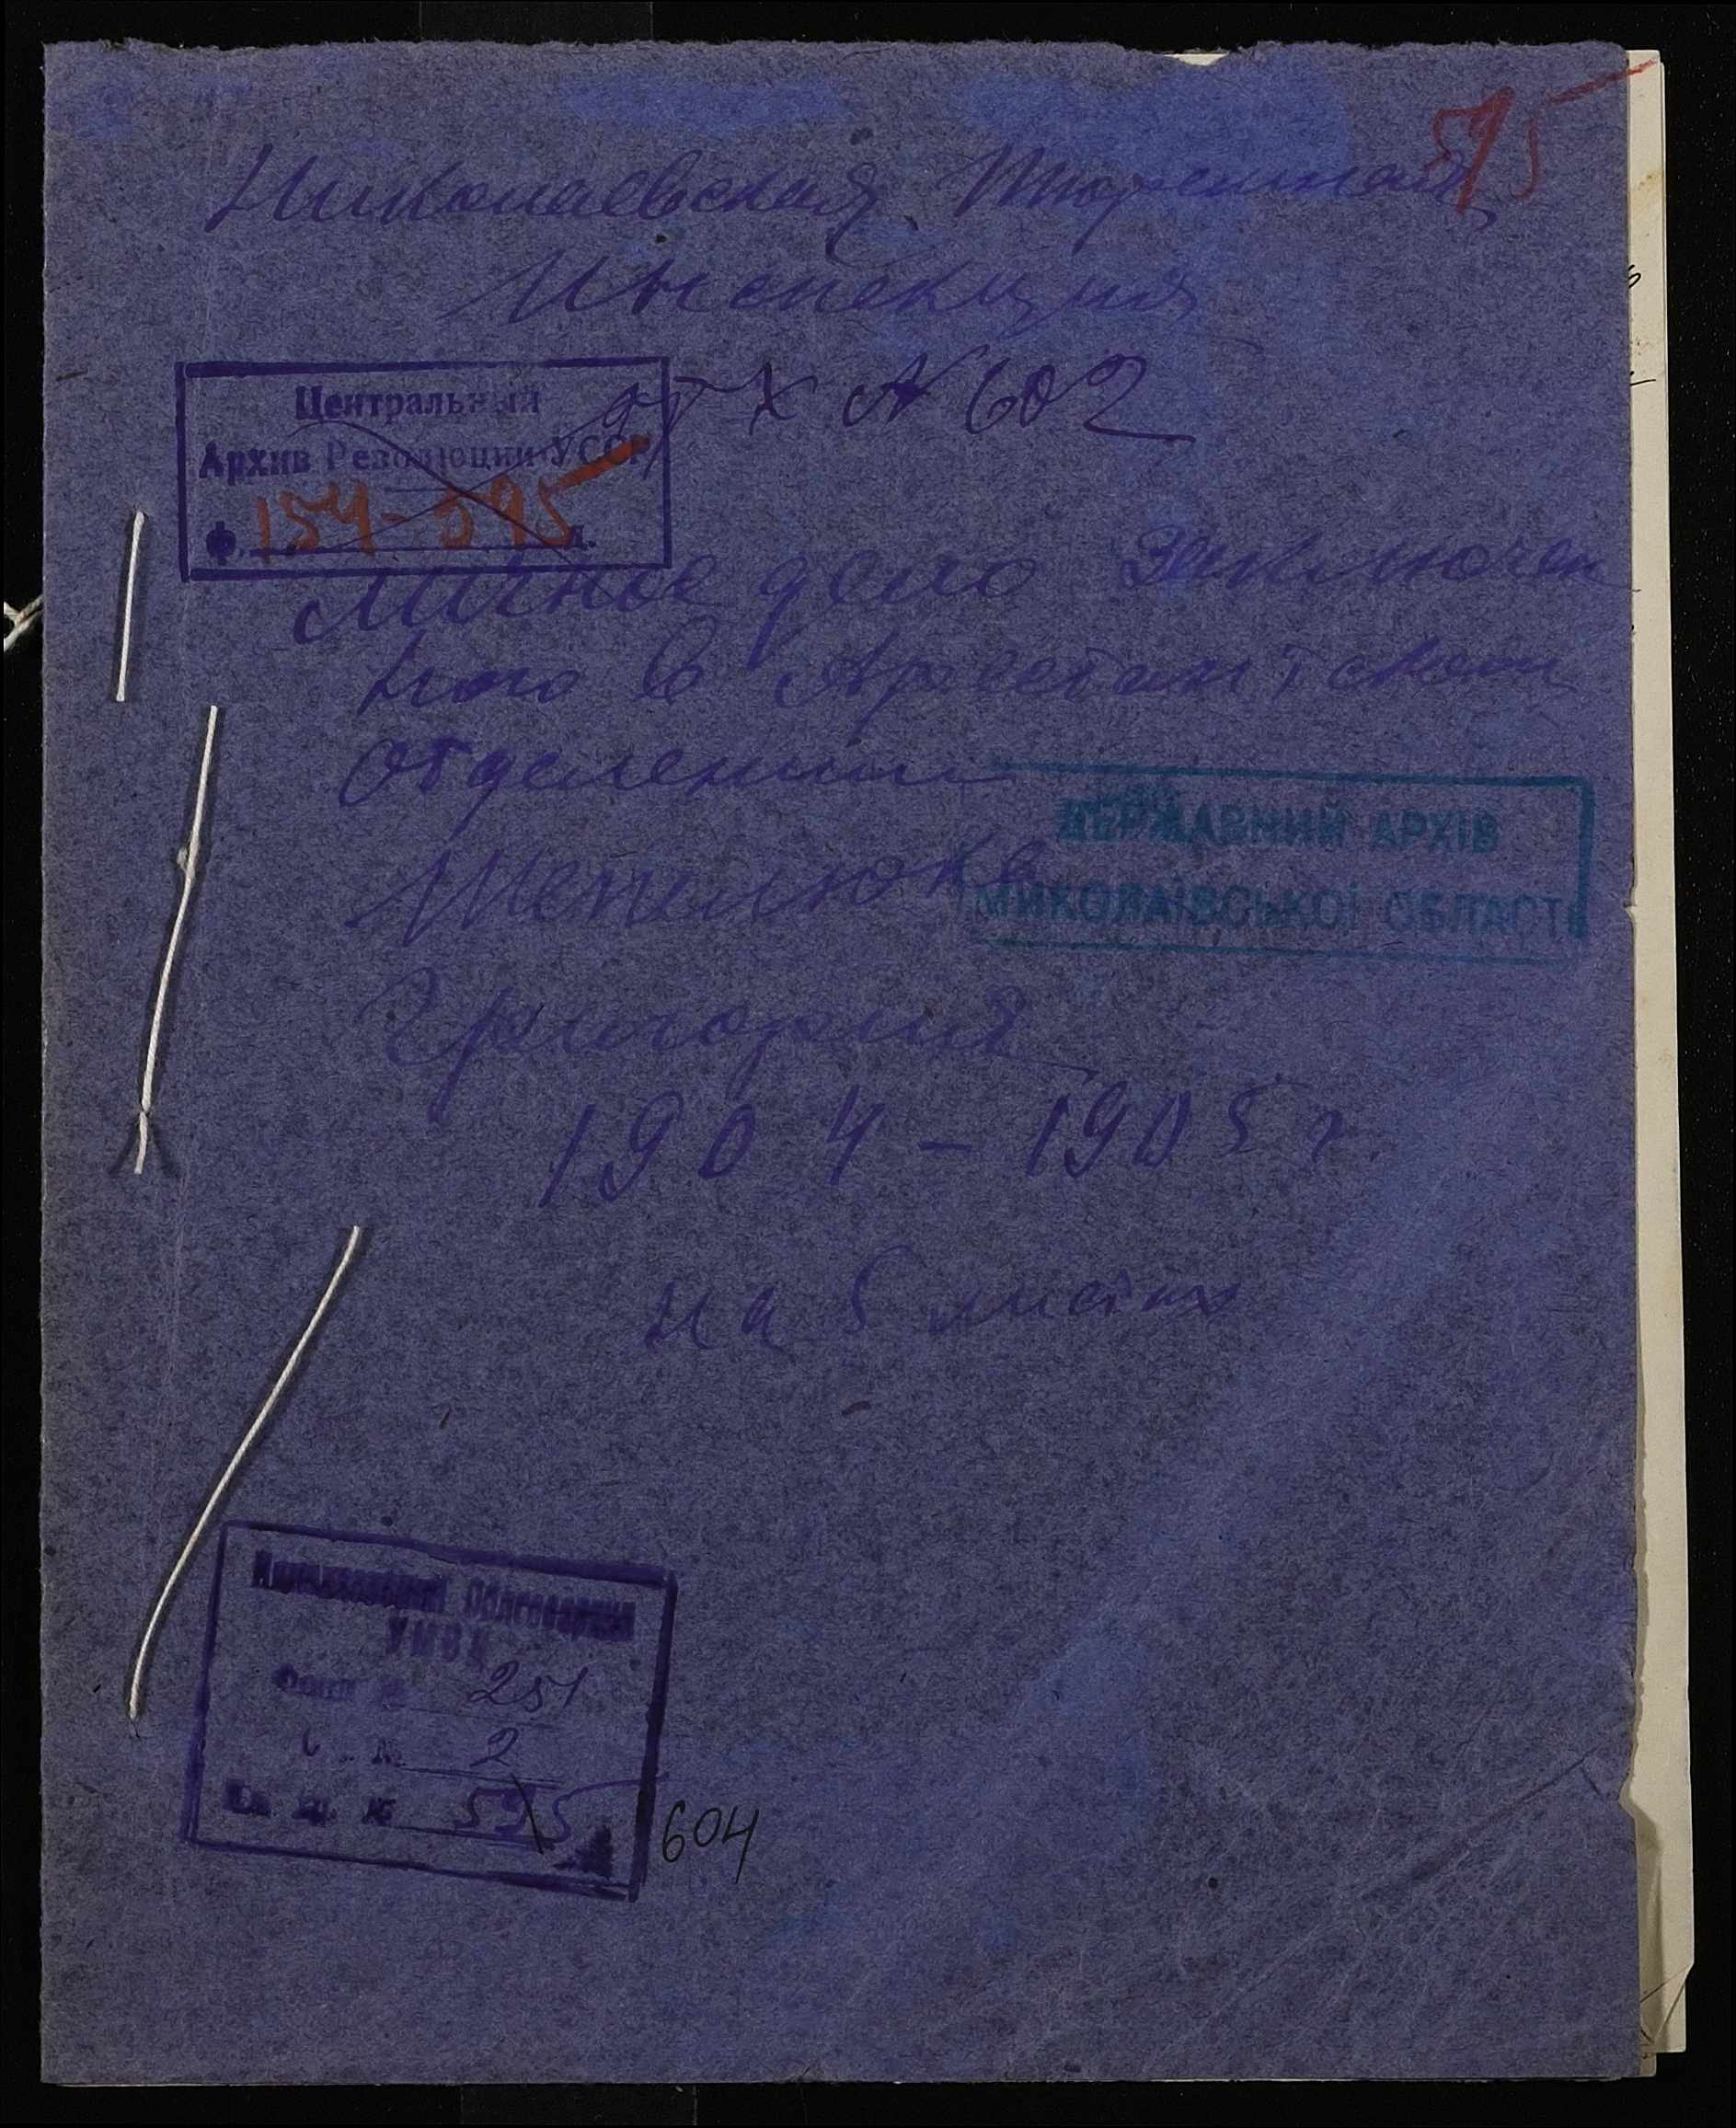 595
Николаевская Тюремная
Инспекция
Центральный
Архив Революции УССР
Ф. 154-595 д.
св X № 602
Личное дело заключен
ного в Арестантском
отделении
ДЕРЖАВНИЙ АРХІВ
МИКОЛАЇВСЬКОЇ ОБЛАСТІ
Шепелюка
Григория
1904-1905 г.
на 5 листах
Николаевский Облгосархив
УНКВД
Фонд № 251
О. № 2
Ед. хр. № 595
604